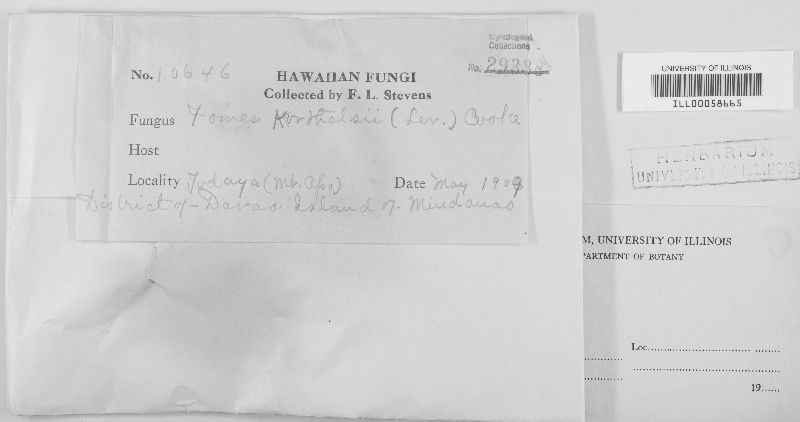 No. 10646
HAWAIIAN FUNGI
Collected by F. L. Stevens
Mycological
Collections
No.
Fungus Fomes Korthalsii (Lev.) Cooke
Host
Locality Todaya (Mt. Apo) Date May 1909
District of Davao Island of Mindanao
UNIVERSITY OF ILLINOIS
ILL00058665
HERBARIUM
UNIVERSITY OF ILLINOIS
M, UNIVERSITY OF ILLINOIS
PARTMENT OF BOTANY
Loc.
19......